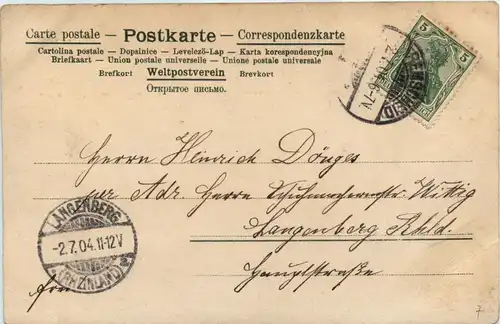 Carte postale – Postkarte – Correspondenzkarte
Cartolina postale – Dopisnice – Levelező-Lap – Karta korespondencyjna
Briefkaart – Union postale universelle – Unione postale universale
Brefkort Weltpostverein Brevkort
Открытое письмо.
5 5
Herrn Heinrich Dönges
per Adr. Herrn Schuhmachermstr. Wittig
Langenberg Rhld.
Hauptstraße
frei
LANGENBERG
-2.7.04.11-12V
(RHEINLAND)
7